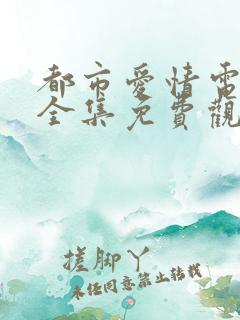 都市愛情電
全集免費觀
搓脚丫
未经同意禁止转载